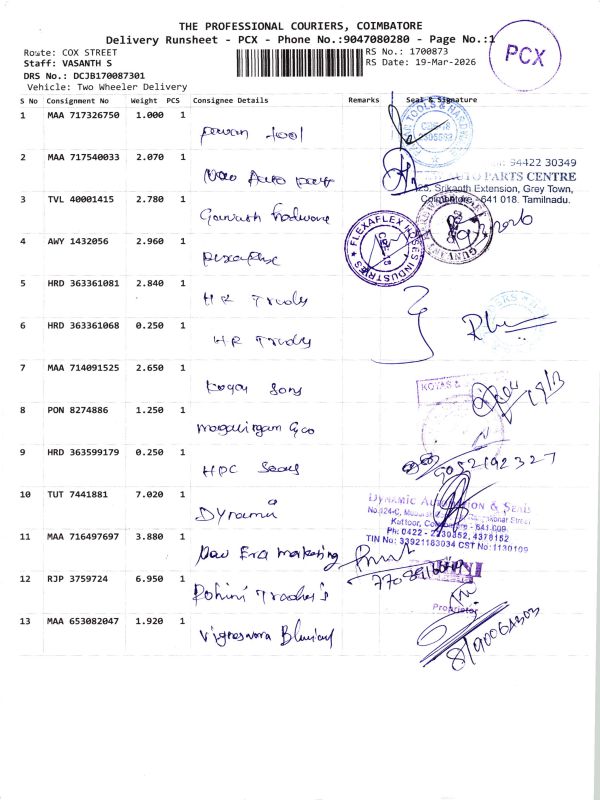 THE PROFESSIONAL COURIERS, COIMBATORE
Delivery Runsheet - PCX - Phone No.:9047080280 - Page No.:1
PCX
Route: COX STREET
RS No.: 1700873
Staff: VASANTH S
RS Date: 19-Mar-2026
DRS No.: DCJB170087301
Vehicle: Two Wheeler Delivery
S No Consignment No Weight PCS Consignee Details Remarks Seal & Signature
1 MAA 717326750 1.000 1 pavan tool
2 MAA 717540033 2.070 1 New Auto parts
94422 30349
AUTO PARTS CENTRE
125, Srikanth Extension, Grey Town,
Coimbatore - 641 018. Tamilnadu.
3 TVL 40001415 2.780 1
4 AWY 1432056 2.960 1 Flexaflex
FLEXAFLEX HOSES INDUSTRIES
5 HRD 363361081 2.840 1 HR Trades
6 HRD 363361068 0.250 1 HR Trades
7 MAA 714091525 2.650 1 Sons
KOTAS &
19/3
8 PON 8274886 1.250 1
9 HRD 363599179 0.250 1 HPC Seals
9052192327
10 TUT 7441881 7.020 1 Dynamic
DYNAMIC & SEALS
Kattoor, - 641 009
Ph: 0422 - 2230352, 4378152
TIN No: 33921183034 CST No: 1130109
11 MAA 716497697 3.880 1 New Era marketing
12 RJP 3759724 6.950 1 Rohini Trader's
Proprietor
13 MAA 653082047 1.920 1